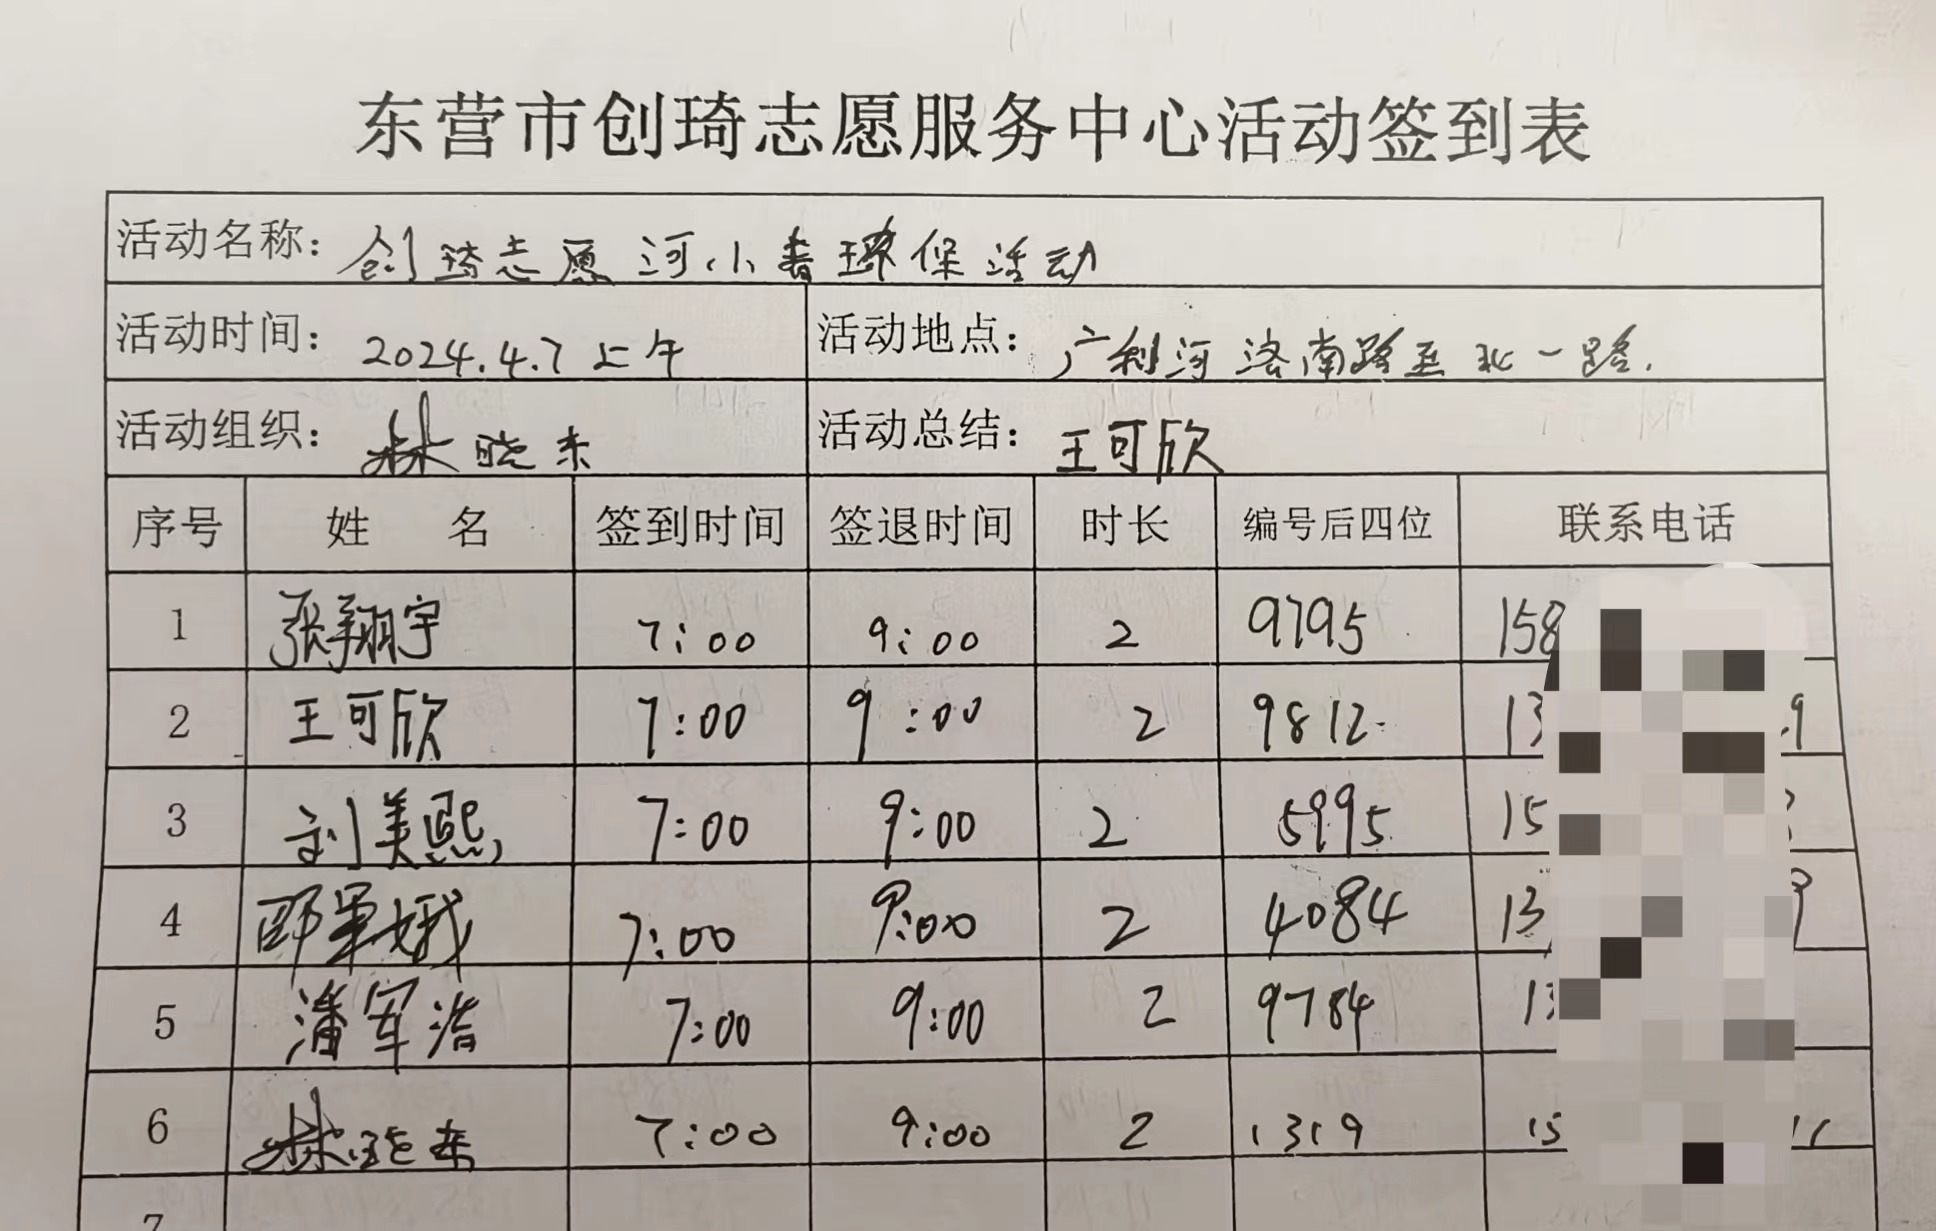 东营市创琦志愿服务中心活动签到表
活动名称：创琦志愿河小青环保活动
活动时间：2024.4.7上午 活动地点：广利河济南路至北一路.
活动组织：林晓东 活动总结：王可欣
序号 姓 名 签到时间 签退时间 时长 编号后四位 联系电话
1 张翔宇 7:00 9:00 2 9795 158
2 王可欣 7:00 9:00 2 9812 13 9
3 刘美熙 7:00 9:00 2 5995 15
4 7:00 9:00 2 4084 13
5 潘军浩 7:00 9:00 2 9784 13
6 林晓东 7:00 9:00 2 1319 15 11
7